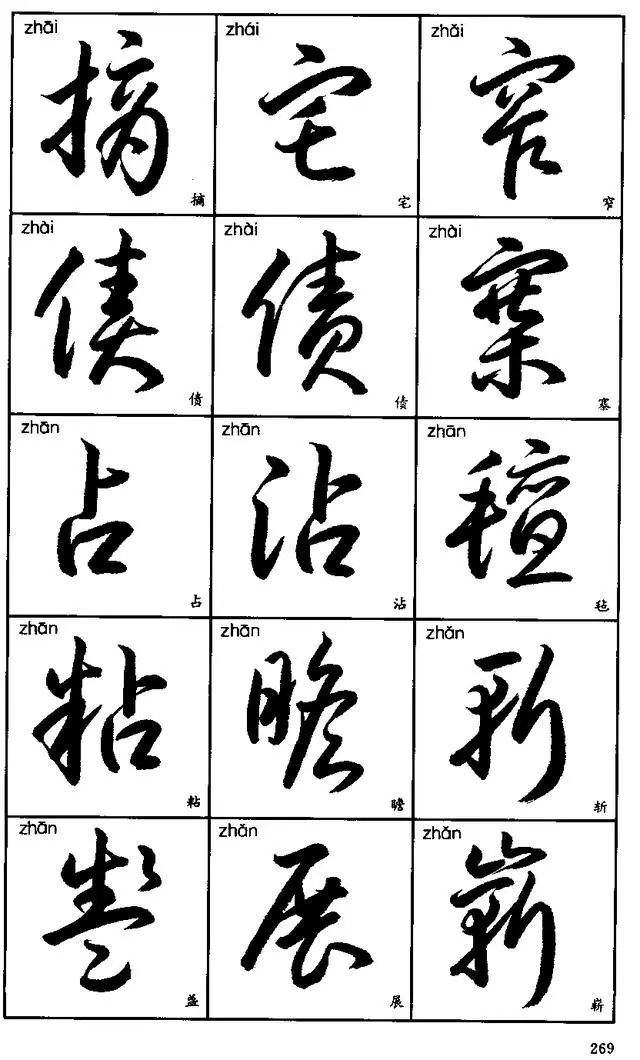 zhāi zhái zhǎi
摘 宅 窄
摘 宅 窄
zhài zhài zhài
债 债 寨
债 债 寨
zhān zhān zhān
占 沾 氈
占 沾 毡
zhān zhān zhǎn
粘 瞻 斬
粘 瞻 斩
zhān zhǎn zhǎn
盞 展 嶄
盏 展 崭
269